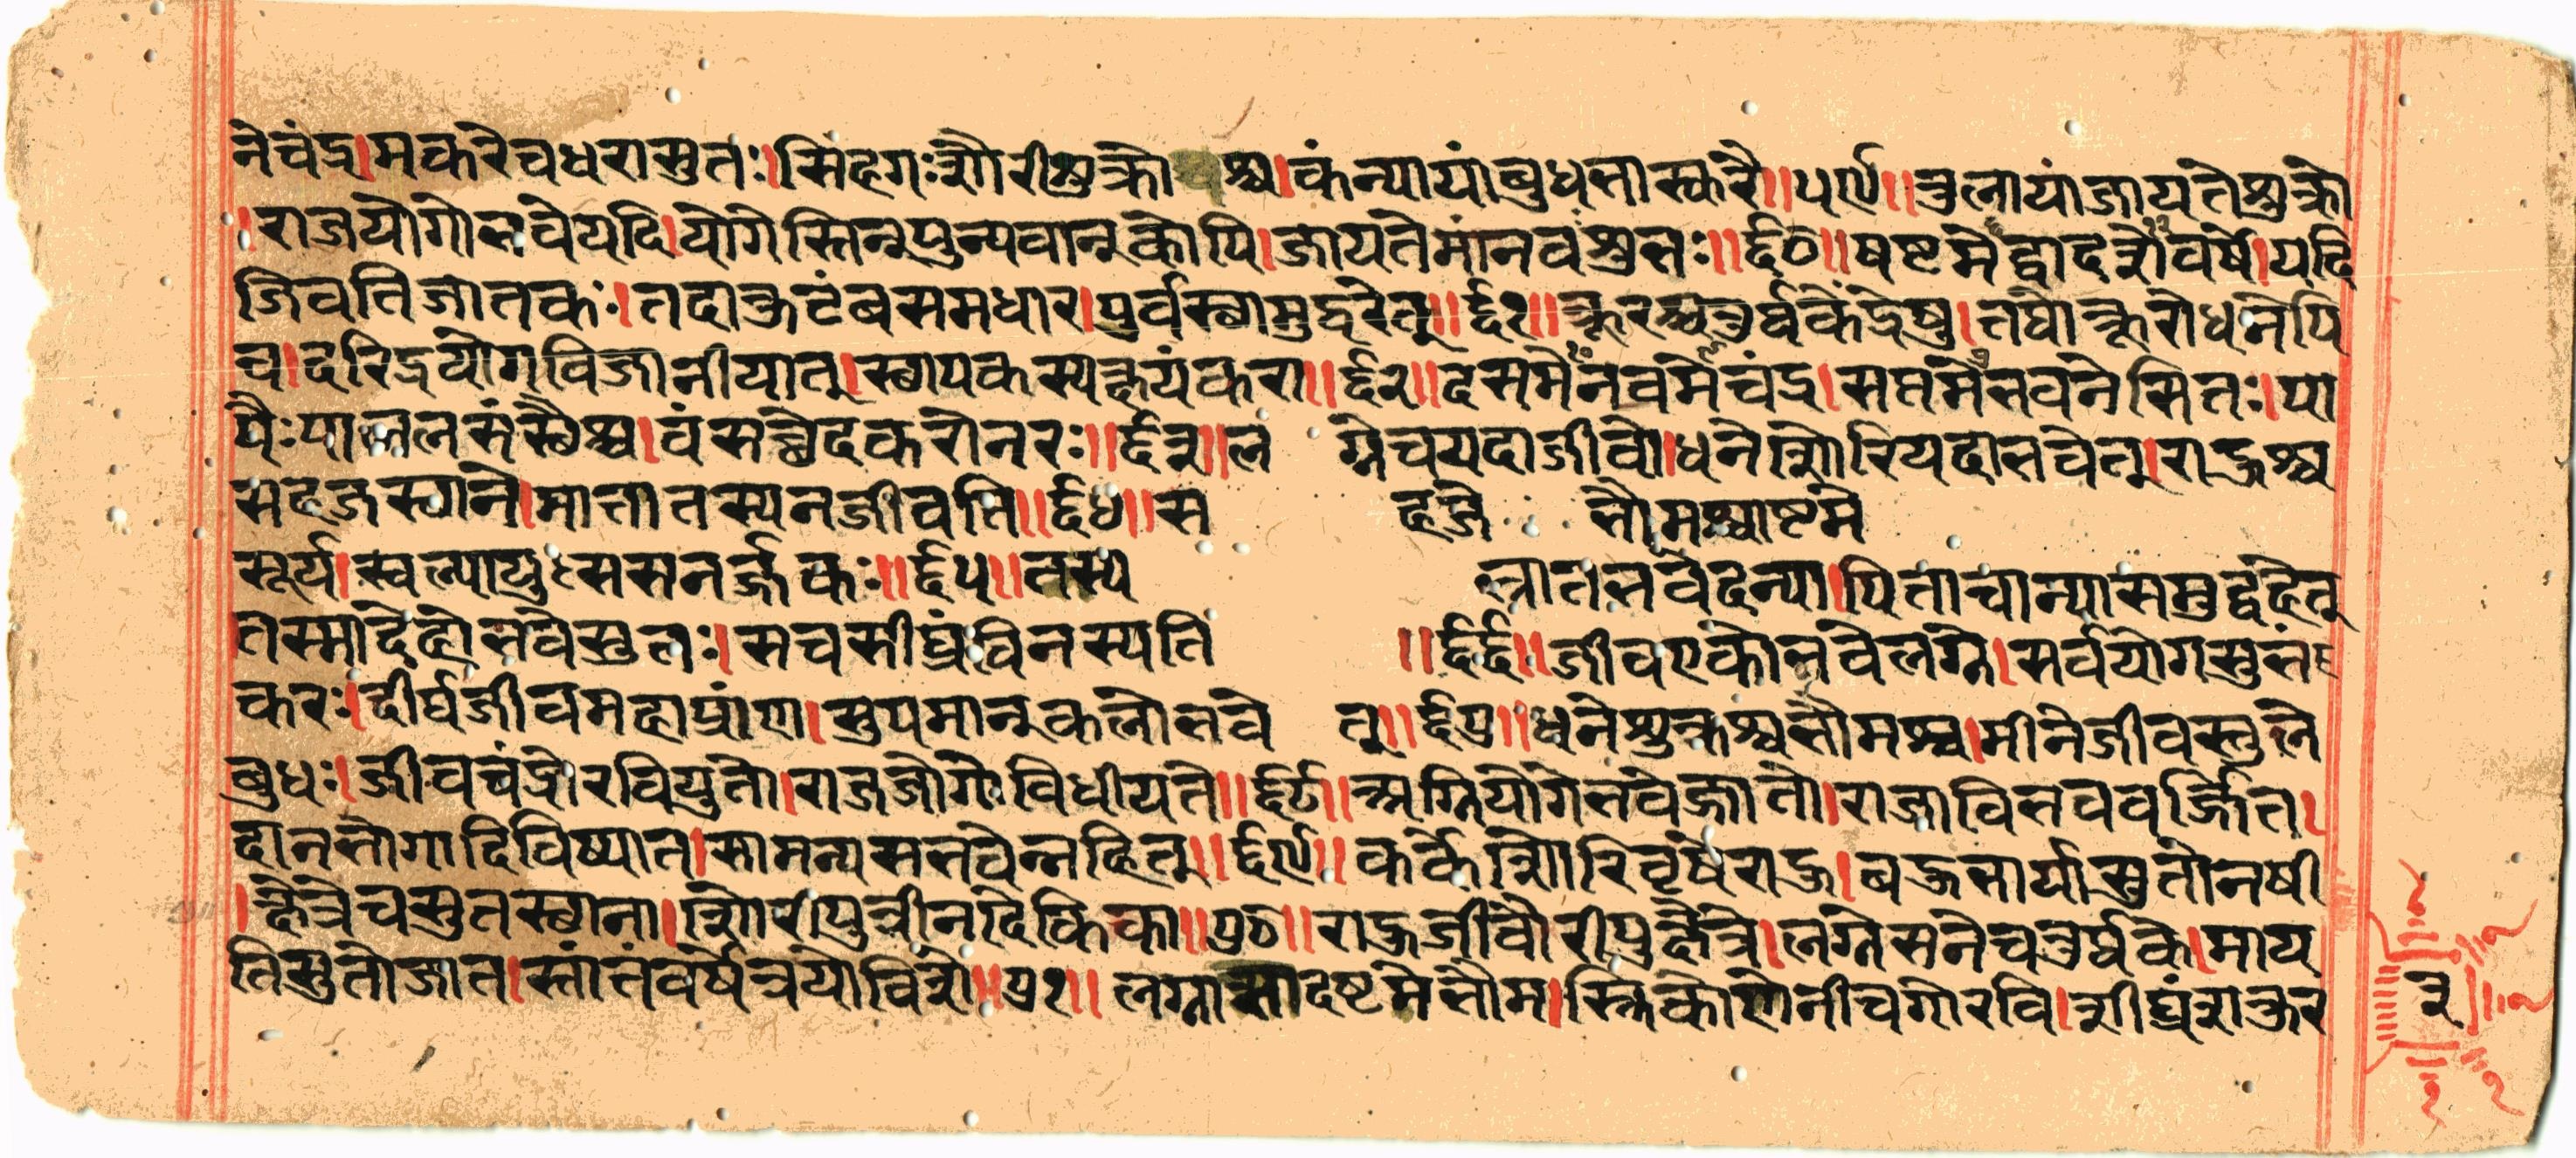 नेचंद्र।मकरेचधरासुतः।सिंहगःशौरीशुक्रोचश्च।कंन्यायांबुधभास्करै॥५९॥तुलायांजायतेशुक्रो
।राजयोगोभवेयदि।योगेस्तिन्पुन्यवान्कोपि।जायतेमांनवंशुभः॥६०॥षष्टमेद्वादशेवर्षे।यदि
जिवतिजातकः।तदाकुटंबसमधार।पुर्वस्छामुद्वरेत्॥६१॥क्रूरश्चतुर्थकेंद्रेषु।तथाक्रूरोधनेपि
च।दरिद्रयोगविजानीयात्।स्छापकस्यक्षयंकरा॥६२॥दसमेनवमेचंद्र।सप्तमेभवनेसितः।पा
पैःपाताललसंस्छैश्च।वंसछेदकरोनरः॥६३॥लं ग्नेचयदाजीवो।धनेशौरियदाभवेत्।राहुश्च
सहजस्छाने।मातातस्यनजीवति॥६४॥स हजे भौमश्चाष्टमे
सूर्य।स्वल्पायुःससनर्ज्जकः॥६५॥तस्य त्राताभवेदन्या।पिताचान्यासमुद्वहेत्
तस्मादेहोभवेसुतः।सचसीघ्रंविनस्यति ॥६६॥जीवएकोभवेलग्ने।सर्वयोगसुभं
करः।दीर्घजीवमहाप्रांण।सुपमान्कलोभवे त्॥६७॥धनेशुक्रश्चभौमश्च।मीनेजीवस्तुले
बुधः।जीवचंद्रोरवियुतो।राजजोगोविधीयते॥६८॥अग्नियोगेभवेज्जातो।राजाविभववर्ज्जित।
दानभोगादिविष्यात।सामन्यसभवेन्नहित्॥६९॥कर्केशौरिवृंषेराहु।बहुभार्यासुतोनषी
।क्षेत्रेचसुतस्छाना।शौरीपुत्रीनदेकिका॥७०॥राहुजीवौरीपुक्षेत्रे।लग्नेसनेचतुर्थके।माय
तिसुतोजात।स्तांतंवर्षेत्रयोविशे॥७१॥ लग्नाञादष्टमेभौम।स्तिकोणेनीचगोरवि।शीघ्रंशक्रर
३